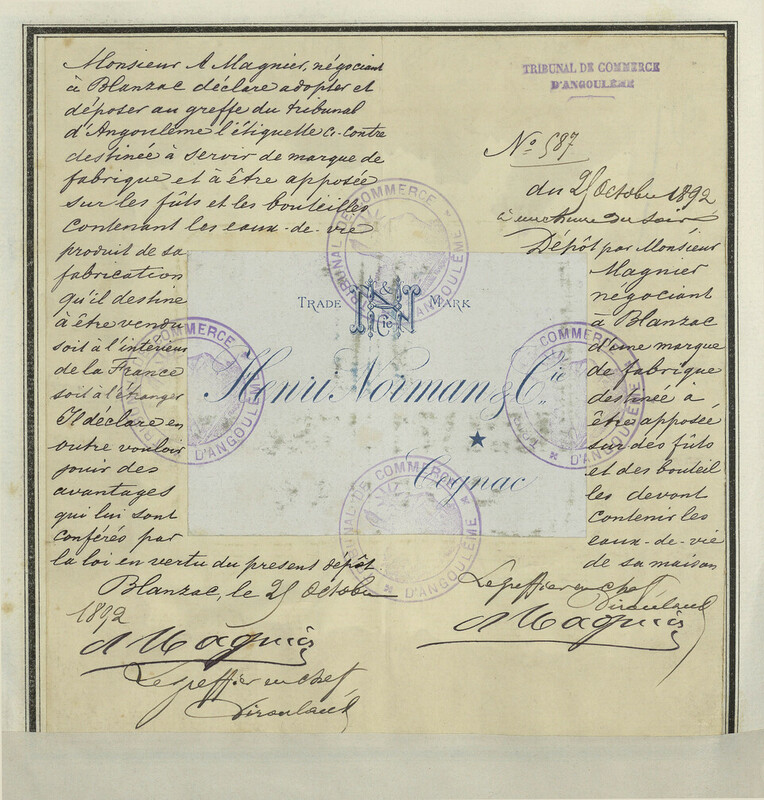 Monsieur A Magnier, négociant
à Blanzac déclare adopter et
déposer au greffe du tribunal
d'Angoulême l'étiquette ci-contre
destinée à servir de marque de
fabrique et à être apposée
sur les fûts et les bouteilles
contenant les eaux-de-vie
produit de sa
fabrication
qu'il destine
à être vendu
soit à l'intérieur
de la France
soit à l'étranger
Il déclare en
outre vouloir
jouir des
avantages
qui lui sont
conférés par
la loi en vertu du present dépôt
Blanzac, le 25 Octobre
1892
A Magnier
Le greffier en chef
TRIBUNAL DE COMMERCE
D'ANGOULÊME
No 587
du 25 Octobre 1892
à une heure du soir
Dépôt par Monsieur
Magnier
négociant
à Blanzac
d'une marque
de fabrique
destinée à
être apposée
sur des fûts
et des bouteil
les devant
contenir les
eaux-de-vie
de sa maison
Le greffier en chef
A Magnier
TRADE MARK
N & Cie
Henri Norman & Cie
Cognac
TRIBUNAL DE COMMERCE D'ANGOULÊME
TRIBUNAL DE COMMERCE D'ANGOULÊME
TRIBUNAL DE COMMERCE D'ANGOULÊME
TRIBUNAL DE COMMERCE D'ANGOULÊME